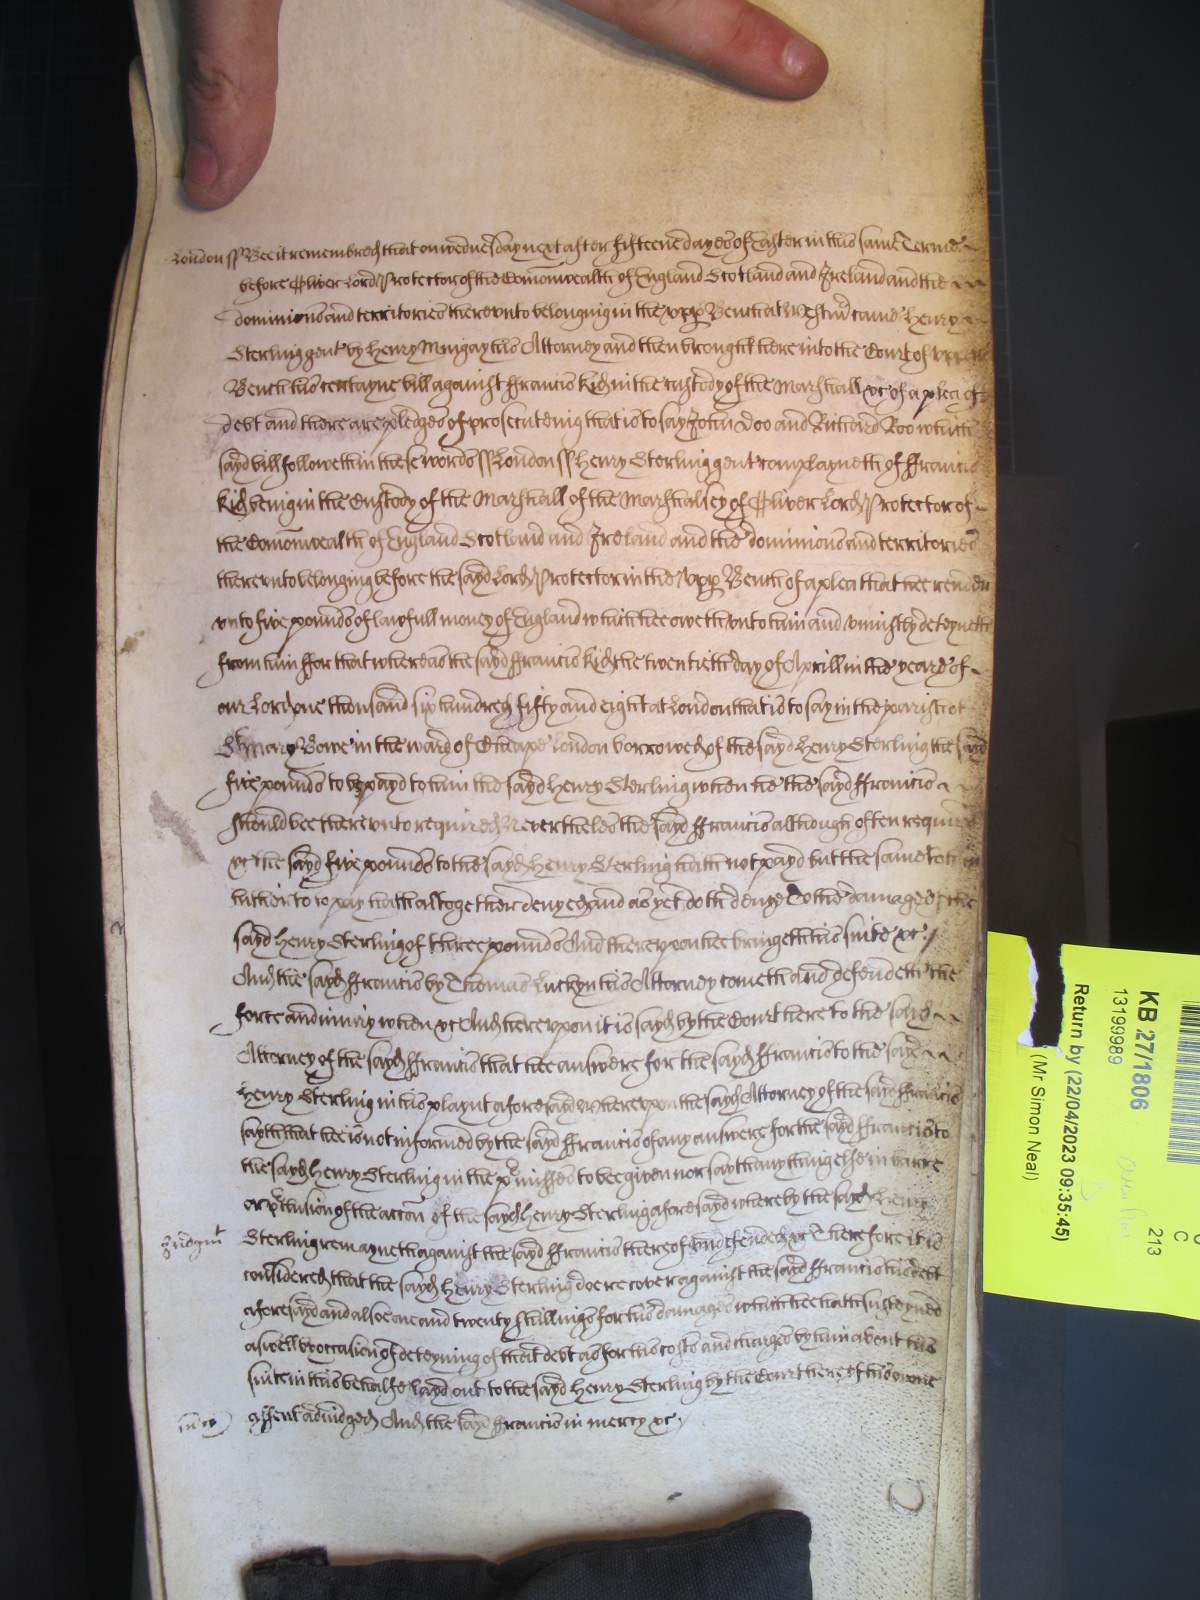 London ss Bee it remembred that on wednesday next after fifteene dayes of Easter in this same Terme
before Oliver Lord Protector of the Comonwealth of England Scotland and Ireland and the
dominions and territories thereunto belonging in the upp Bench at Westmr came Henry
Sterling gent by Henry Mingay his Attorney and then brought here into the Court of upper
Bench his certayne bill against ffrancis Kid in the custody of the Marshall &c of a plea of
debt and there are pledges of prosecuteing that is to say John Doo and Richard Roo which
sayd bill followeth in these words ss London ss Henry Sterling gent complayneth of ffrancis
Kid being in the Custody of the Marshall of the Marshalsey of Oliver Lord Protector of
the Comonwealth of England Scotland and Ireland and the dominions and territories
thereunto belonging before the sayd Lord Protector in the Upp Bench of a plea that hee render
unto five pounds of lawfull money of England which hee oweth unto him and uniustly deteyneth
from him ffor that whereas the sayd ffrancis Kid the twentieth day of Aprill in the yeare of
our Lord one thousand six hundred fifty and eight at London that is to say in the parish of
St Mary Bowe in the ward of Cheape London borrowed of the sayd Henry Sterling the sayd
five pounds to be payd to him the sayd Henry Sterling when he the sayd ffrancis
should bee thereunto required Neverthelesse the sayd ffrancis although often required
&c the sayd five pounds to the sayd Henry Sterling hath not payd but the same to him
hitherto to pay hath altogether denyed and as yet doth denye To the damage of the
sayd Henry Sterling of three pounds And thereupon hee bringeth his suite &c
And the sayd ffrancis by Thomas Luckyn his Attorney cometh and defendeth the
force and iniury when &c And hereupon it is sayd by the Court here to the sayd
Attorney of the sayd ffrancis that hee answere for the sayd ffrancis to the sayd
Henry Sterling in his playnt aforesayd Whereupon the sayd Attorney of the sayd ffrancis
sayth that hee is not informed by the sayd ffrancis of any answere for the sayd ffrancis to
the sayd Henry Sterling in the pmisses to bee given nor sayth any thing else in barre
or pclusion of the accon of the sayd Henry Sterling aforesayd whereby the sayd Henry
Judgmt Sterling remayneth against the sayd ffrancis thereof undefended &c Therefore it is
considered that the sayd Henry Sterling doe recover against the sayd ffrancis his debt
aforesayd and alsoe one and twenty shillings for his damages which hee hath susteyned
aswell by occasion of deteyning of that debt as for his costs and charges by him about his
suite in this behalfe layd out to the sayd Henry Sterling by the Court here of his owne
mcy assent adiudged And the sayd ffrancis in mercy &c
KB 27/1806
13199989
Return by (22/04/2023 09:35:45)
(Mr Simon Neal)
213
C